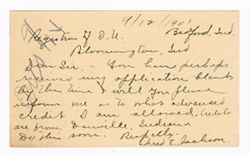 9/12/190
Bedford, Ind.
Registrar I. U.
Bloomington, Ind
Dear Sir, - You have perhaps
received my application blanks
by this time & will you please
inform me as to what advanced
credit I am allowed.
are from Danville, Indiana
Do this soon. Respctly.
E. Jackson.